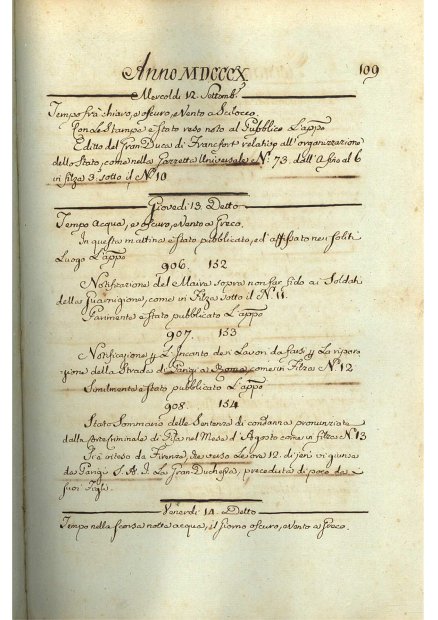 Anno MDCCCX 109
Mercoldi 12 Settemb.
Tempo frà chiaro, e oscuro, e Vento a Scilocco.
Con le Stampe è stato reso noto al Pubblico L'appo
Editto del Gran Duca di Francfort relativo all'organizzazione
dello Stato, come nella Gazzetta Universale N. 73. dall'A fino al 6
in filza 3. sotto il N. 10
Giovedi 13. Detto
Tempo Acqua, e oscuro, e Vento a Greco.
In questa mattina è stato pubblicato, ed affissato nei soliti
Luogo L'appo
906. 152
Notificazione del Maire sopra non far fido ai Soldati
della Guarnigione, come in Filza sotto il N. 11.
Parimente è stato pubblicato L'appo
907. 153
Notificazione p. L'Incanto dei Lavori da farsi p. La ripara-
zione della Strada di Parigi a Roma come in Filza N. 12
Similmente è stato pubblicato L'appo
908. 154
Stato Sommario delle Sentenze di condanna pronunziate
dalla Corte Criminale di Pisa nel Mese d'Agosto come in filza N. 13
Si è inteso da Firenze, che verso Le ore 12. di jeri vi giunse
da Parigi S. A. I. La Gran Duchessa, preceduta di poco da
suoi Figli.
Venerdi 14. Detto
Tempo nella scorsa notte acqua, il Giorno oscuro, e Vento a Greco.